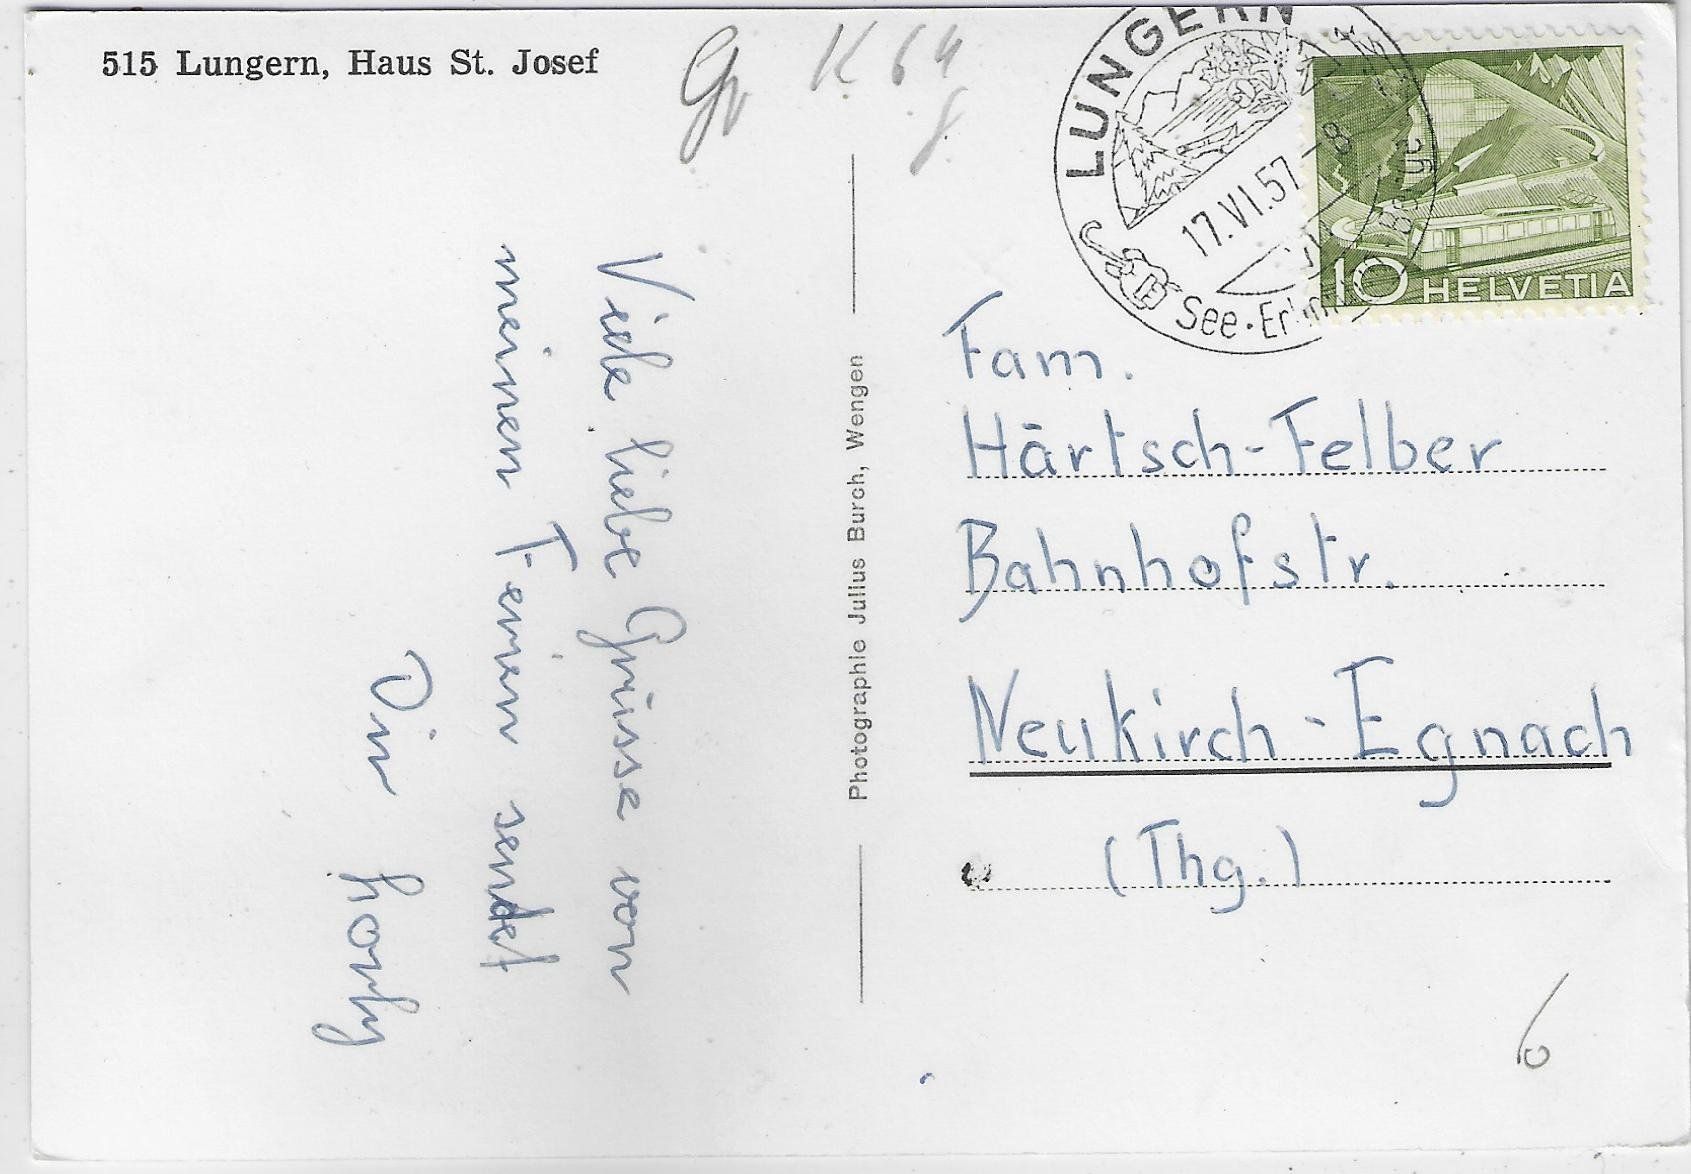 515 Lungern, Haus St. Josef
K 64
LUNGERN
17.VI.57-8
See·Er
10 HELVETIA
Viele liebe Grüsse von
meinen Ferien sendet
Photographie Julius Burch, Wengen
Fam.
Härtsch-Felber
Bahnhofstr.
Neukirch-Egnach
(Thg.)
6